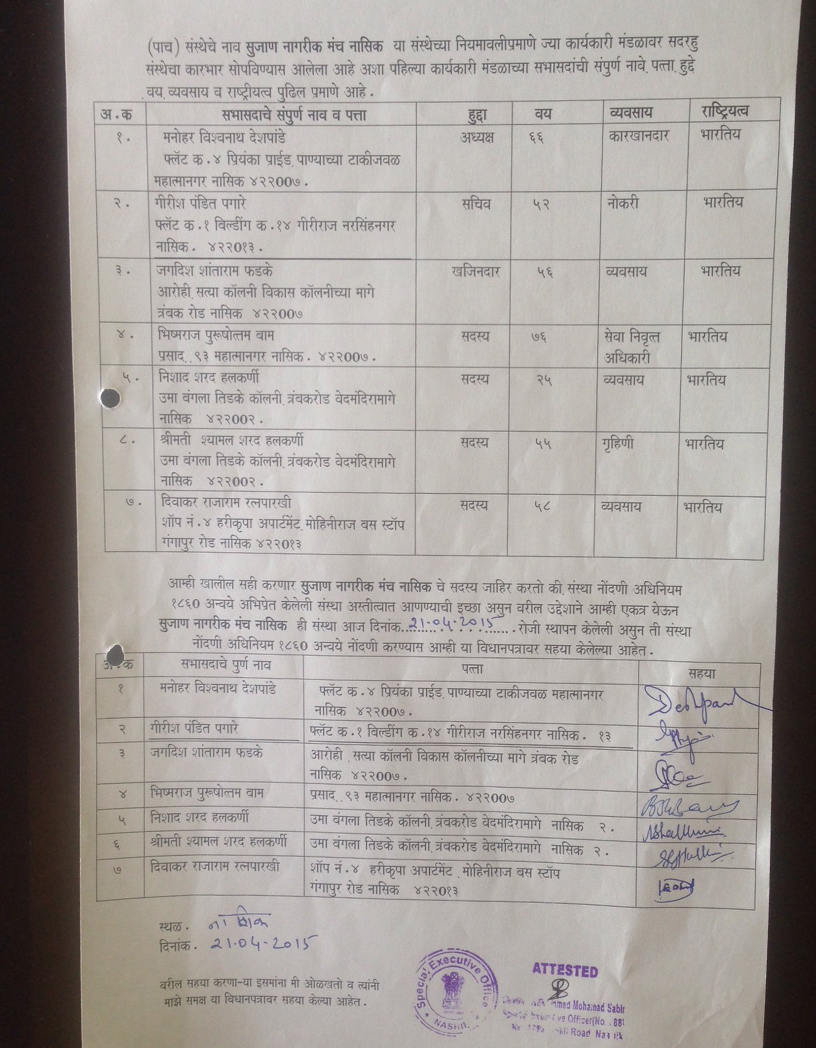 (पाच) संस्थेचे नाव सुजाण नागरीक मंच नासिक या संस्थेच्या नियमावलीप्रमाणे ज्या कार्यकारी मंडळावर सदरहु
संस्थेचा कारभार सोपविण्यास आलेला आहे अशा पहिल्या कार्यकारी मंडळाच्या सभासदांची संपुर्ण नावे, पत्ता, हुद्दे
वय, व्यवसाय व राष्ट्रीयत्व पुढिल प्रमाणे आहे.
अ.क सभासदाचे संपुर्ण नाव व पत्ता हुद्दा वय व्यवसाय राष्ट्रियत्व
१. मनोहर विश्वनाथ देशपांडे अध्यक्ष ६६ कारखानदार भारतिय
फ्लॅट क.४ प्रियंका प्राईड, पाण्याच्या टाकीजवळ
महात्मानगर नासिक ४२२00७.
२. गीरीश पंडित पगारे सचिव ५२ नोकरी भारतिय
फ्लॅट क.१ विल्डींग क.१४ गीरीराज नरसिंहनगर
नासिक. ४२२0१३.
३. जगदिश शांताराम फडके खजिनदार ५६ व्यवसाय भारतिय
आरोही, सत्या कॉलनी विकास कॉलनीच्या मागे
त्रंबक रोड नासिक ४२२00७
४. भिष्मराज पुरूषोत्तम बाम सदस्य ७६ सेवा निवृत्त भारतिय
प्रसाद, .९३ महात्मानगर नासिक. ४२२00७. अधिकारी
५. निशाद शरद हलकर्णी सदस्य २५ व्यवसाय भारतिय
उमा बंगला तिडके कॉलनी, त्रंबकरोड वेदमंदिरामागे
नासिक ४२२00२.
८. श्रीमती श्यामल शरद हलकर्णी सदस्य ५५ गृहिणी भारतिय
उमा बंगला तिडके कॉलनी, त्रंबकरोड वेदमंदिरामागे
नासिक ४२२00२.
७. दिवाकर राजाराम रत्नपारखी सदस्य ५८ व्यवसाय भारतिय
शॉप नं.४ हरीकृपा अपार्टमेंट, मोहिनीराज बस स्टॉप
गंगापुर रोड नासिक ४२२0१३
आम्ही खालील सही करणार सुजाण नागरीक मंच नासिक चे सदस्य जाहिर करतो की, संस्था नोंदणी अधिनियम
१८६0 अन्वये अभिप्रेत केलेली संस्था अस्तीत्वात आणण्याची इच्छा असुन वरील उद्देशाने आम्ही एकत्र येऊन
सुजाण नागरीक मंच नासिक ही संस्था आज दिनांक..21-04-2015..रोजी स्थापन केलेली असुन ती संस्था
नोंदणी अधिनियम १८६0 अन्वये नोंदणी करण्यास आम्ही या विधानपत्रावर सहया केलेल्या आहेत.
अ.क सभासदाचे पुर्ण नाव पत्ता सहया
१ मनोहर विश्वनाथ देशपांडे फ्लॅट क.४ प्रियंका प्राईड, पाण्याच्या टाकीजवळ महात्मानगर
नासिक ४२२00७.
२ गीरीश पंडित पगारे फ्लॅट क.१ विल्डींग क.१४ गीरीराज नरसिंहनगर नासिक. १३
३ जगदिश शांताराम फडके आरोही, सत्या कॉलनी विकास कॉलनीच्या मागे त्रंबक रोड
नासिक ४२२00७.
४ भिष्मराज पुरूषोत्तम बाम प्रसाद, .९३ महात्मानगर नासिक. ४२२00७
५ निशाद शरद हलकर्णी उमा बंगला तिडके कॉलनी, त्रंबकरोड वेदमंदिरामागे नासिक २.
६ श्रीमती श्यामल शरद हलकर्णी उमा बंगला तिडके कॉलनी, त्रंबकरोड वेदमंदिरामागे नासिक २.
७ दिवाकर राजाराम रत्नपारखी शॉप नं.४ हरीकृपा अपार्टमेंट, मोहिनीराज बस स्टॉप
गंगापुर रोड नासिक ४२२0१३
स्थळ. नाशिक
दिनांक. 21-04-2015
वरील सहया करणा-या इसमांना मी ओळखतो व त्यांनी
माझे समक्ष या विधानपत्रावर सहया केल्या आहेत.
Special Executive Officer
NASHIK
ATTESTED
Mohamad Sabir
Executive Officer(No. 881
Road